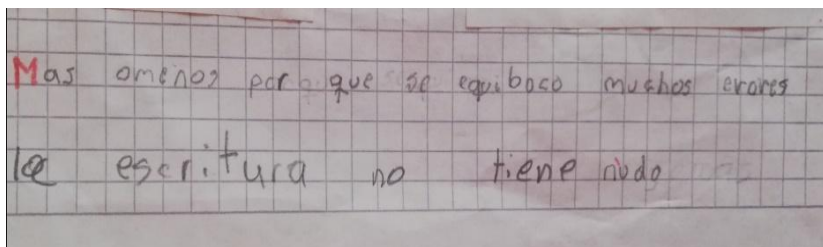 Mas omenos por que se equiboco muchos erores
la escritura no tiene nudo